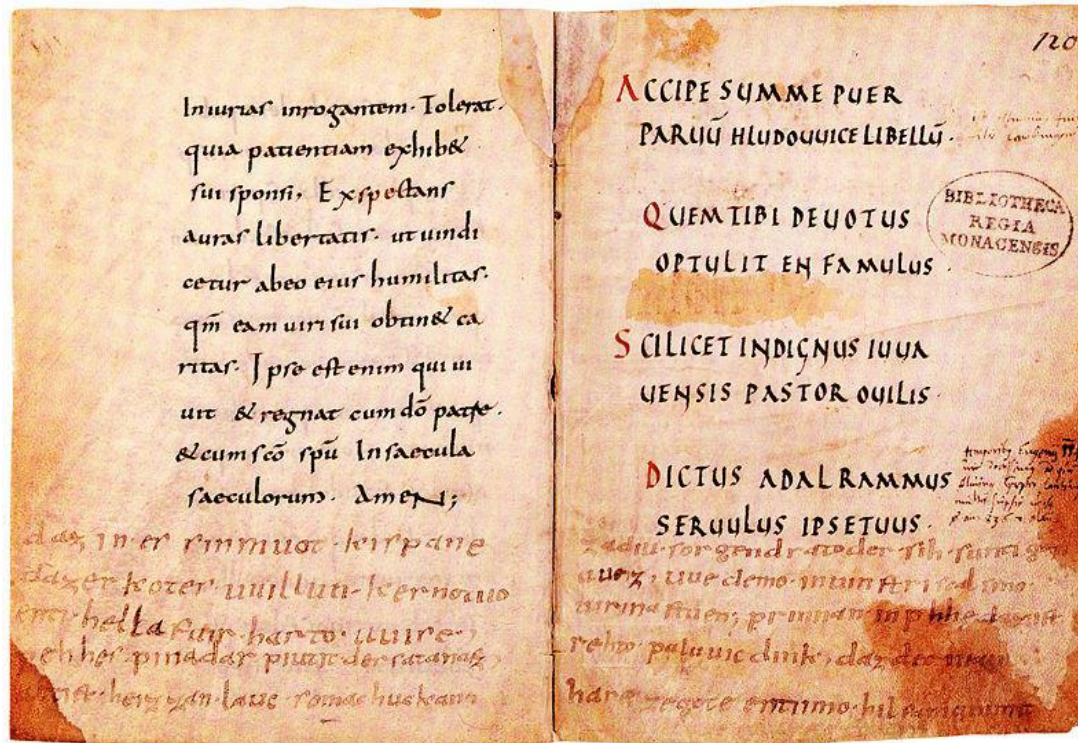 Iniurias inrogantem· Tolerat·
quia patientiam exhib&
sui sponsi, Exspectans
auras libertatis· ut uindi
cetur abeo eius humilitas·
qm̄ eam uiri sui obtin& ca
ritas· Ipse est enim qui ui
uit & regnat cum dō patre·
& cum scō spū In saecula
saeculorum· Amen;
daz, in es sin muot· kispane
dazer kotes· uuillun· kerno tuo
enti· hella fuir· harto· uuise·
pehhes· pina dar piutit der satanasz
heizzan· lauc· so mac huckan
120
ACCIPE SUMME PUER
PARUŪ HLUDOUUICE LIBELLŪ·
QUEM TIBI DEUOTUS
OPTULIT EN FAMULUS·
SCILICET INDIGNUS IUUA
UENSIS PASTOR OUILIS·
DICTUS ADALRAMMUS
SERUULUS IPSE TUUS·
BIBLIOTHECA
REGIA
MONACENSIS.
za diu· sorgen drato der sih suntigen
uueiz, uue demo· in uinstri scal sino
uirina stuen; prinnan in pehhe daz ist
rehto paluuic dink, daz der man
haret ze gote enti imo· hilfa niquimit